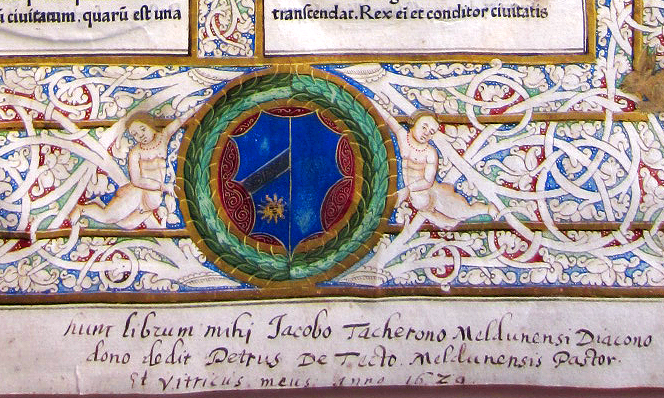 i ciuitatum, quarũ est una
transcendat. Rex ei᷑ et conditor ciuitatis
hunc librum mihj Jacobo Tacherono Meldunensi Diacono
dono dedit Petrus De Tecto. Meldunensis Pastor.
Et Vitricus meus. Anno 1629